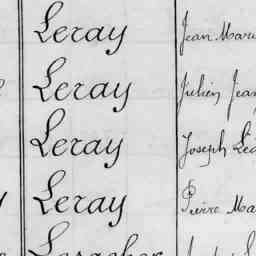 Leray Jean Marie
Leray Julien Jean
Leray Joseph
Leray Pierre